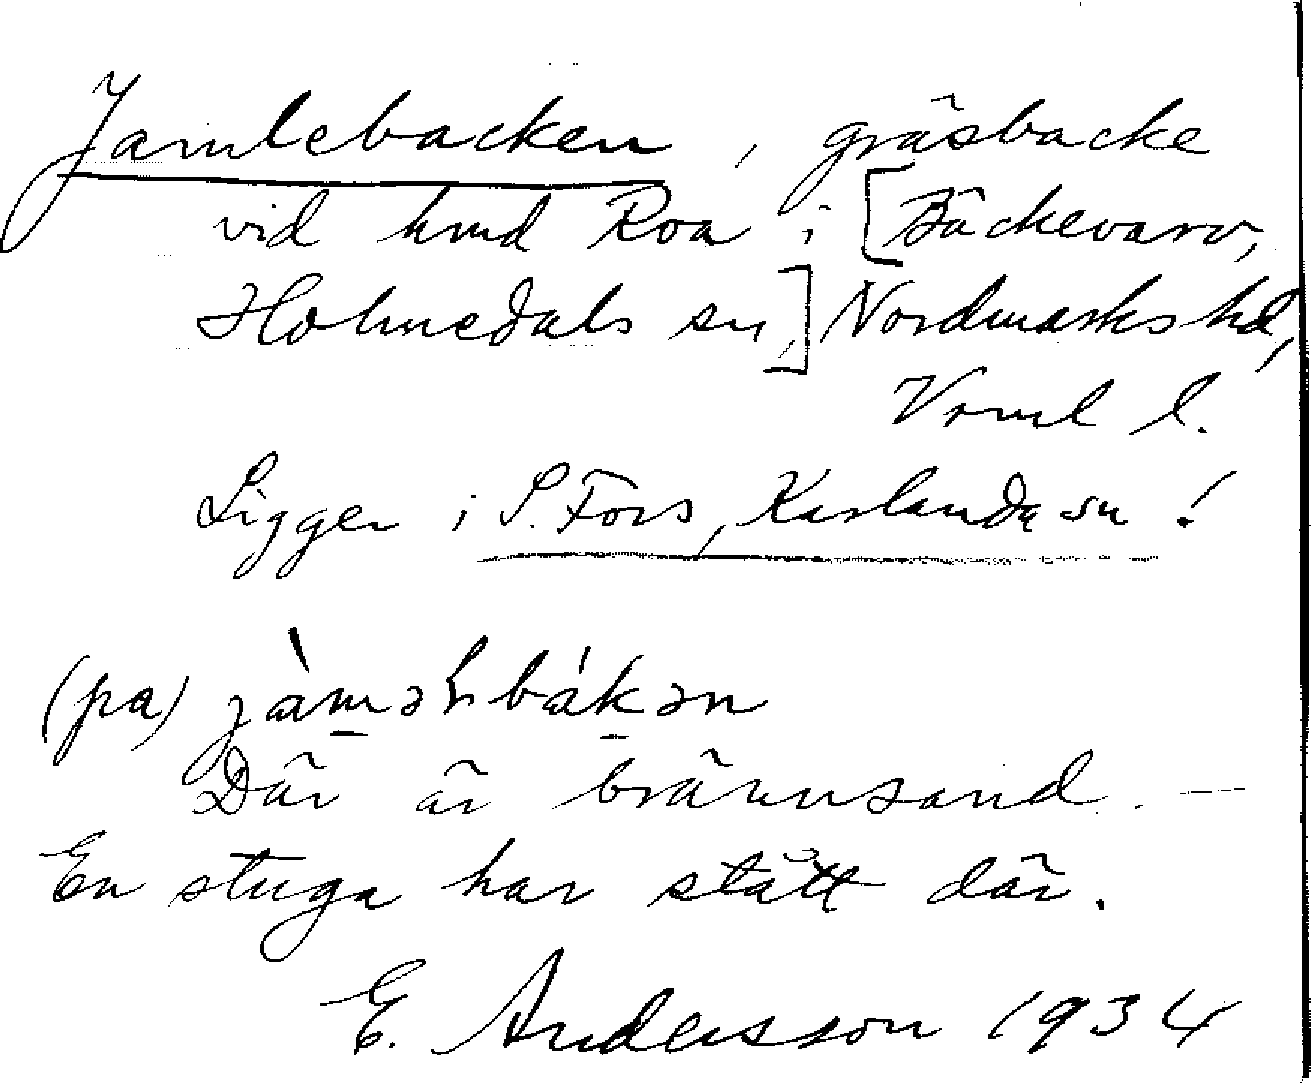 Jamlebacken, gräsbacke
vid hmd Roa i [Bäckevarv,
Holmedals sn,] Nordmarks hd,
Vrml l.
Ligger i S. Fors, Karlanda sn!
(pa)
Där är brännsand. —
En stuga har stått där.
E. Andersson 1934